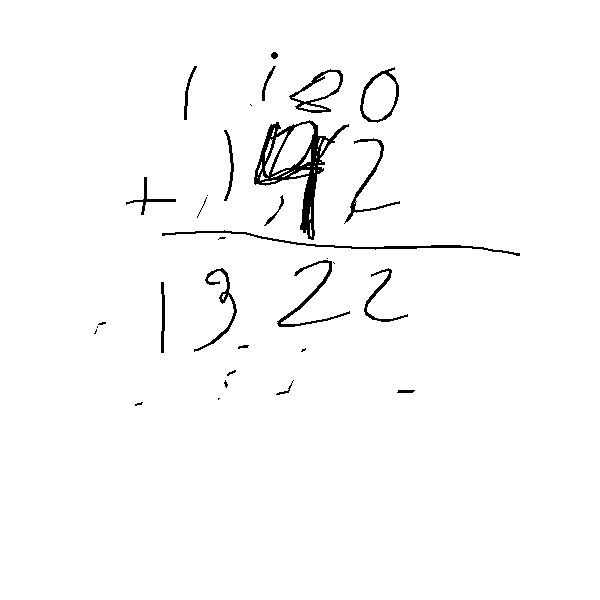 1120
+ 192
1322